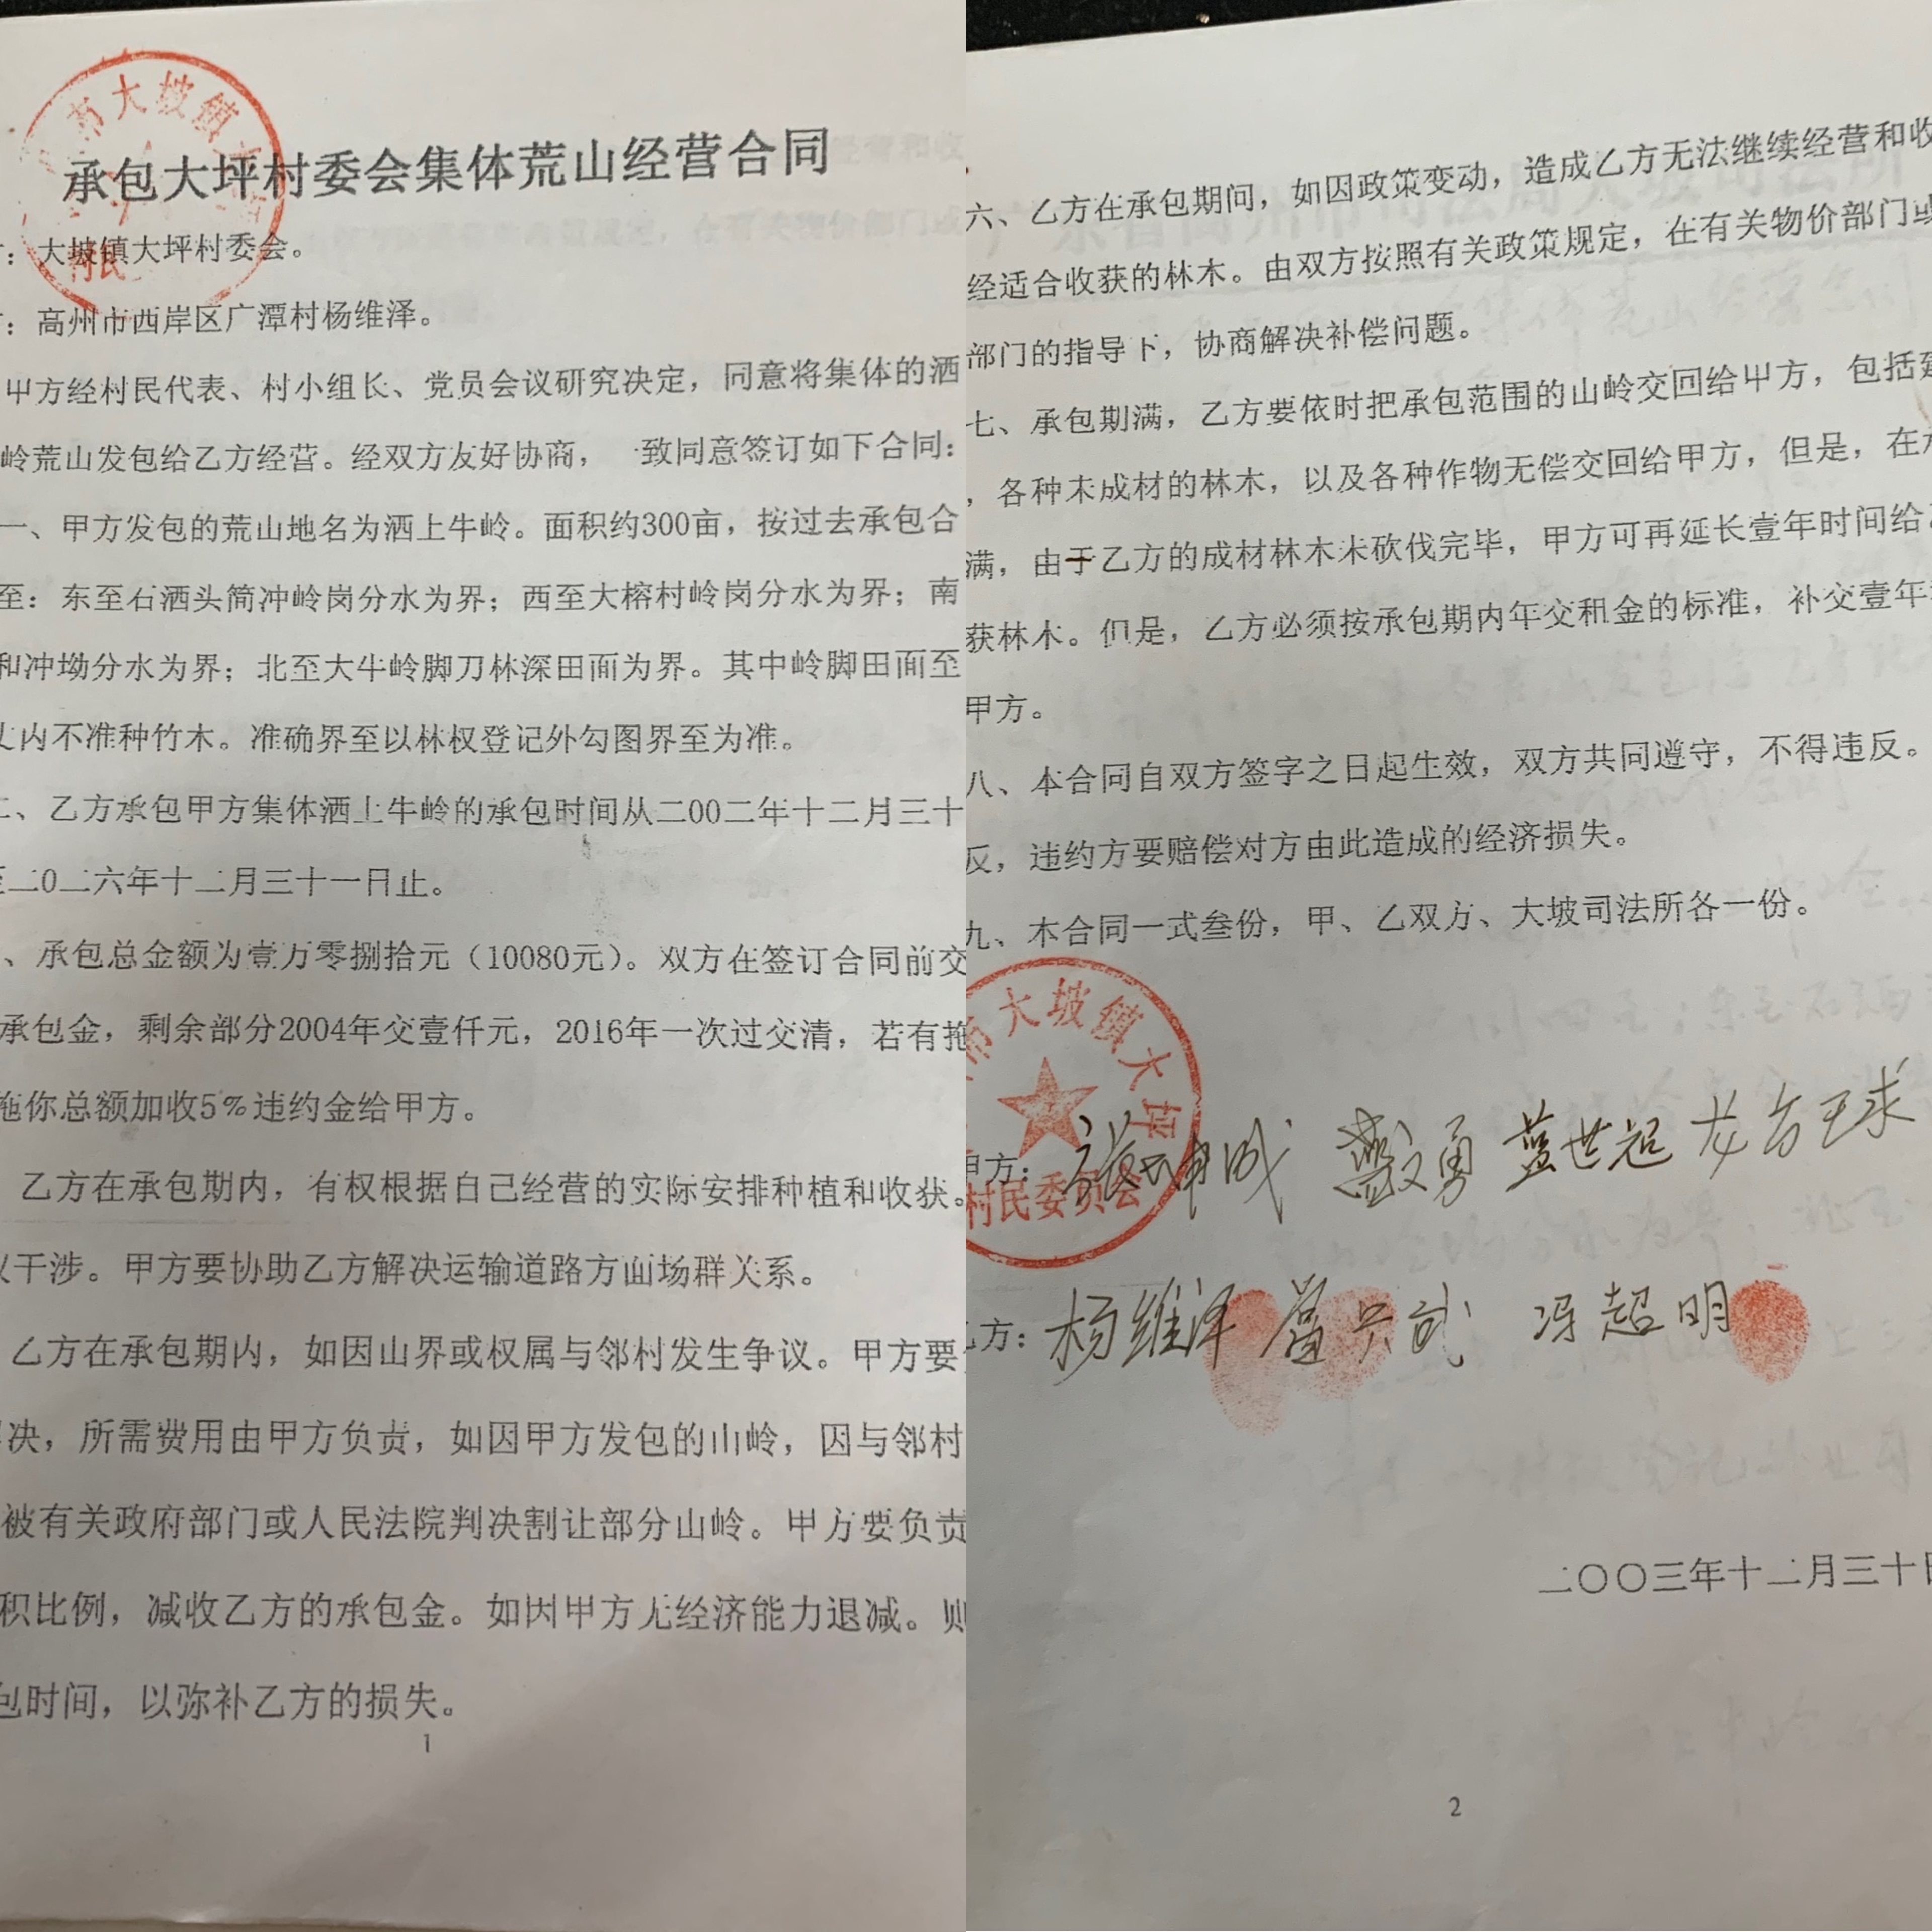 市大坡镇
承包大坪村委会集体荒山经营合同
：大坡镇大坪村委会。
村民
：高州市西岸区广潭村杨维泽。
甲方经村民代表、村小组长、党员会议研究决定，同意将集体的洒
岭荒山发包给乙方经营。经双方友好协商，一致同意签订如下合同：
一、甲方发包的荒山地名为洒上牛岭。面积约300亩，按过去承包合
至：东至石洒头简冲岭岗分水为界；西至大榕村岭岗分水为界；南
和冲坳分水为界；北至大牛岭脚刀林深田面为界。其中岭脚田面至
丈内不准种竹木。准确界至以林权登记外勾图界至为准。
二、乙方承包甲方集体洒上牛岭的承包时间从二00二年十二月三十
至二0二六年十二月三十一日止。
、承包总金额为壹万零捌拾元（10080元）。双方在签订合同前交
承包金，剩余部分2004年交壹仟元，2016年一次过交清，若有拖
拖你总额加收5%违约金给甲方。
乙方在承包期内，有权根据自己经营的实际安排种植和收获。
干涉。甲方要协助乙方解决运输道路方面场群关系。
乙方在承包期内，如因山界或权属与邻村发生争议。甲方要
决，所需费用由甲方负责，如因甲方发包的山岭，因与邻村
被有关政府部门或人民法院判决割让部分山岭。甲方要负责
积比例，减收乙方的承包金。如因甲方无经济能力退减。则
包时间，以弥补乙方的损失。
1
六、乙方在承包期间，如因政策变动，造成乙方无法继续经营和收
经适合收获的林木。由双方按照有关政策规定，在有关物价部门或
部门的指导下，协商解决补偿问题。
七、承包期满，乙方要依时把承包范围的山岭交回给甲方，包括建
，各种未成材的林木，以及各种作物无偿交回给甲方，但是，在承
满，由于乙方的成材林木未砍伐完毕，甲方可再延长壹年时间给
获林木。但是，乙方必须按承包期内年交租金的标准，补交壹年
甲方。
八、本合同自双方签字之日起生效，双方共同遵守，不得违反。
反，违约方要赔偿对方由此造成的经济损失。
九、本合同一式叁份，甲、乙双方、大坡司法所各一份。
市大坡镇大坪
甲方：
村民委员会
乙方：杨维泽 冯超明
二〇〇三年十二月三十日
2